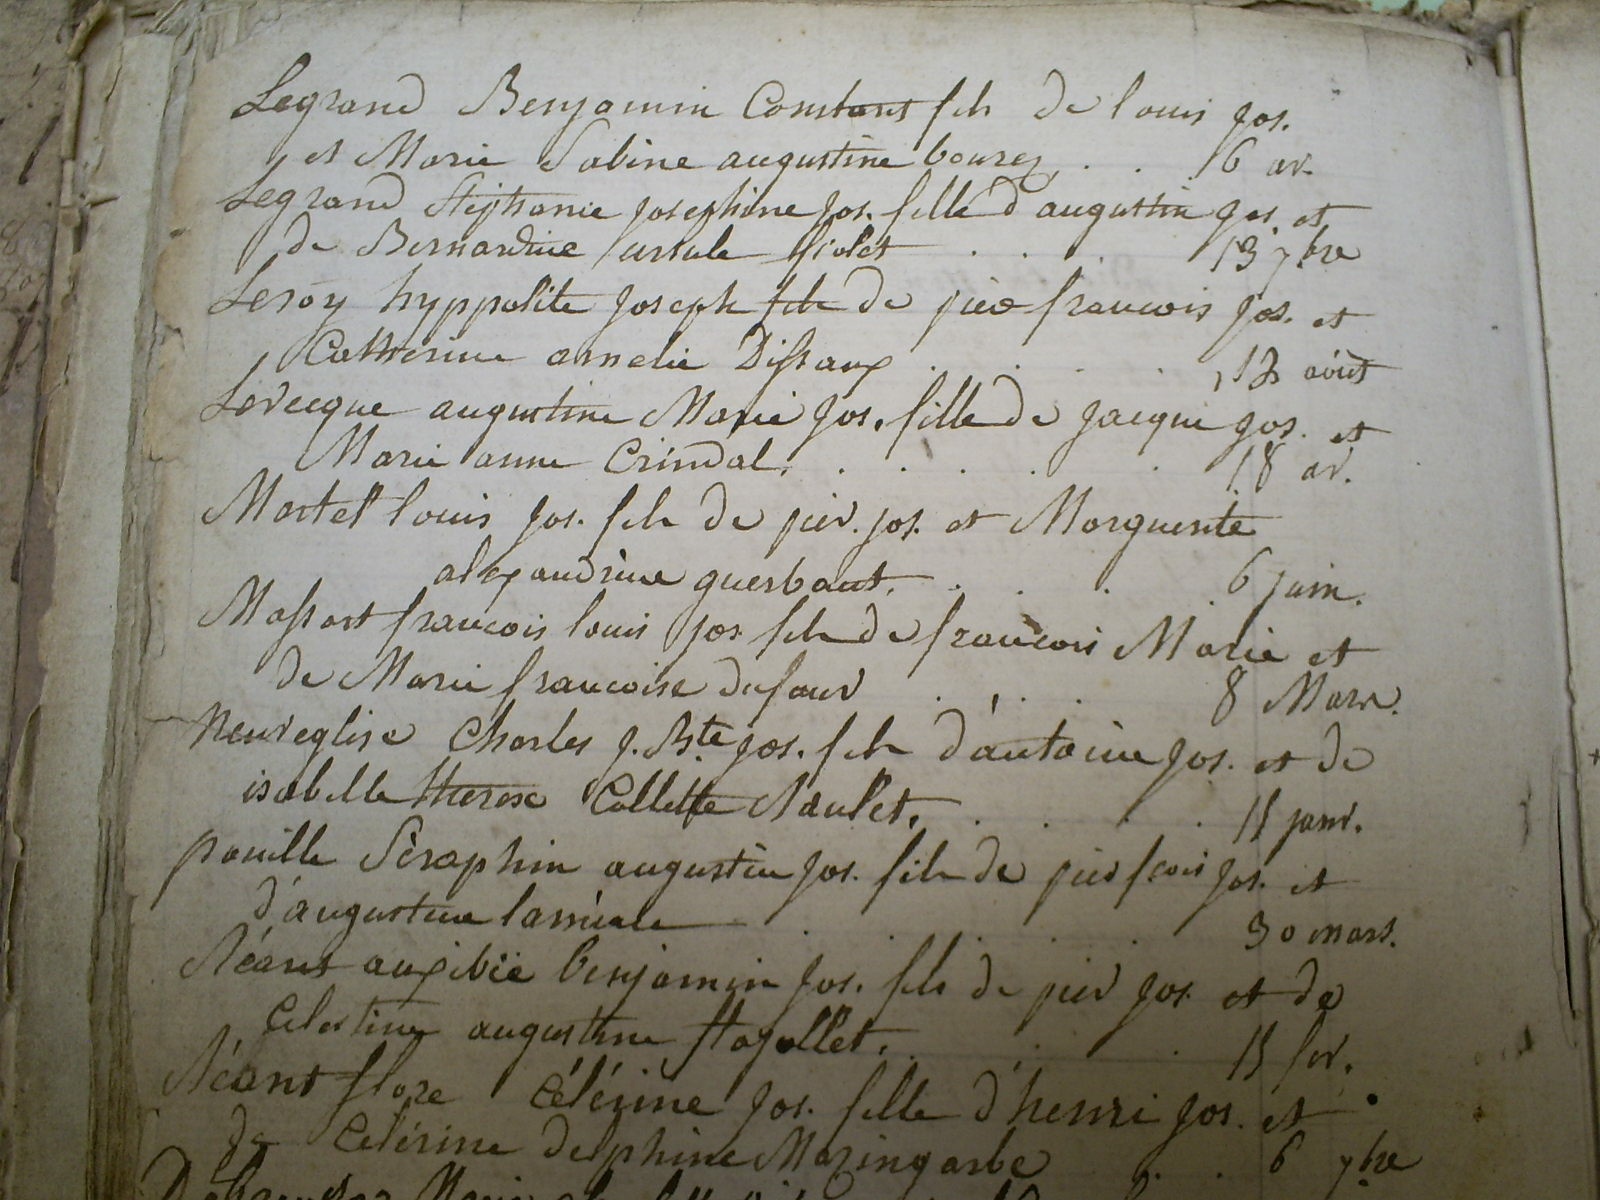 Legrand Benjamin Constant fils de louis jos.
et Marie Sabine augustine bourez . . 16 av.
Legrand Stéphanie josephine jos. fille d'augustin jos. et
de Bernardine ursule fiolet . . . 13 7bre
Leroy hyppolite joseph fils de pier francois jos. et
Catherine amelie Dissaux . . . 12 août
Lévecque augustine Marie jos. fille de jacque jos. et
Marie anne Crindal. . . . . . 18 av.
Martel louis jos. fils de pier. jos. et Marguerite
alexandrine querbant. . . . 6 juin.
Massart francois louis jos. fils de francois Marie et
de Marie francoise dufour . . . 8 Mars.
Neureglise Charles j. Bte jos. fils d'antoine jos. et de
isabelle therese Collette Naulet. . . . . 11 janv.
pouille Séraphin augustin jos. fils de pier fcois jos. et
d'augustine . . . . 30 mars.
Réant auxibie benjamin jos. fils de pier jos. et de
Celestine augustine . . . 11 fev.
Réant flore Célérine jos. fille d'henri jos. et
de Celérine delphine Mazingarbe . . 6 7bre